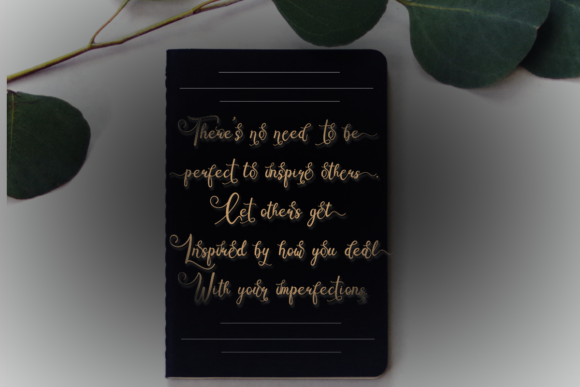 There's no need to be
perfect to inspire others.
Let others get
Inspired by how you deal
With your imperfections